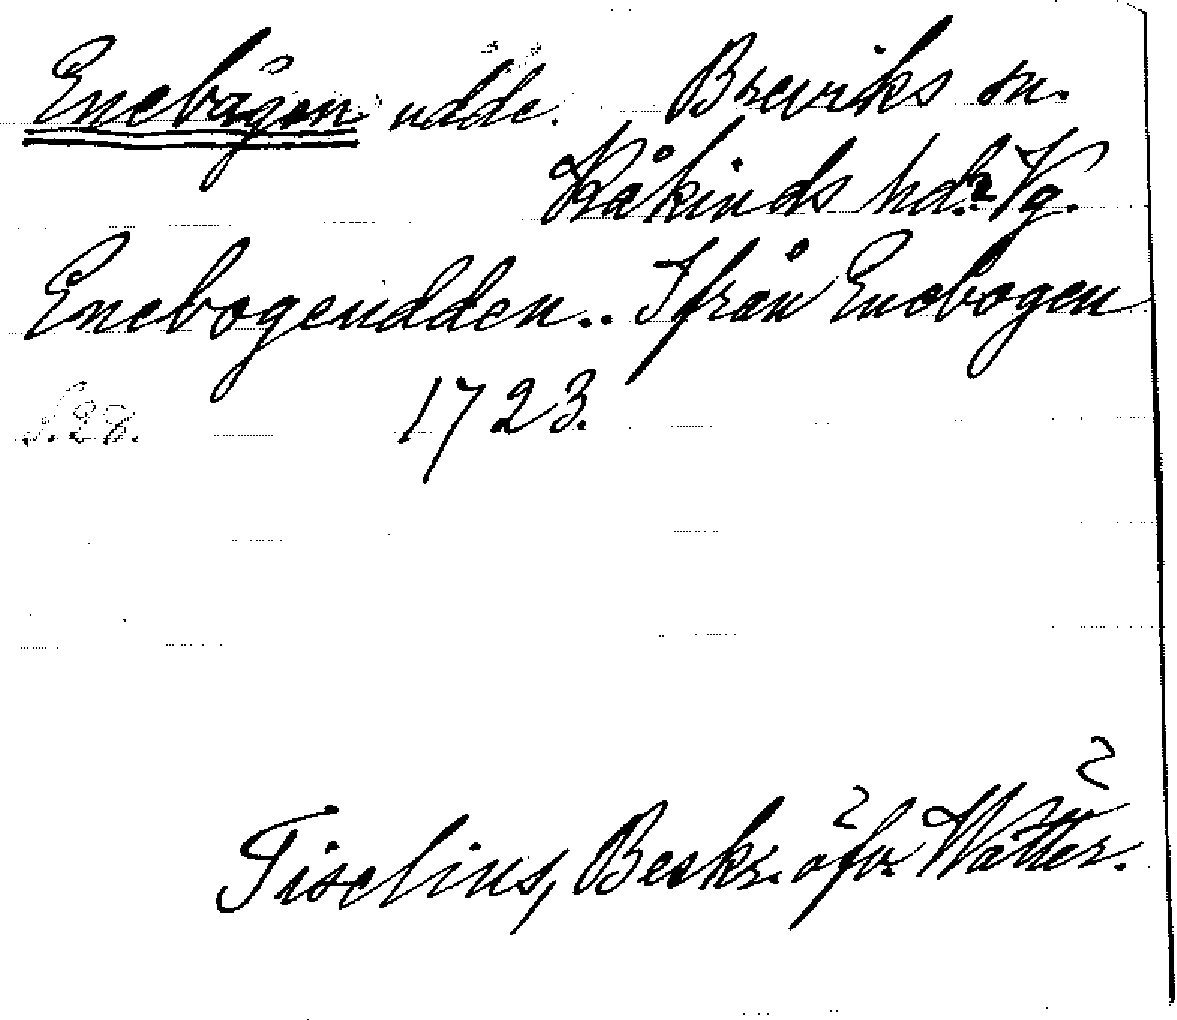 Enebågen udde. Breviks sn.
Kåkinds hd. Vg.
Enebogeudden.. Ifrån Enebogen
S.28. 1723.
Tiselius, Beskr. öfv. Wätter.